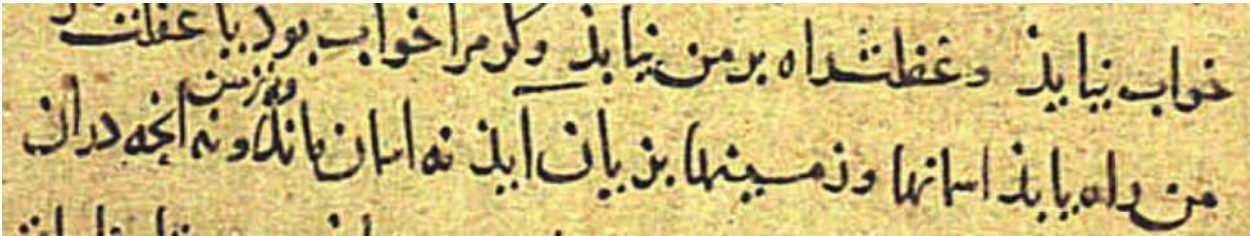 خواب نیابذ و غفلت راه بر من نیابذ وگر مرا خواب بوذ یا غفلت
من راه یابذ اسمانها و زمینها بزیان آیذ نه اسمان ماند و نه زمین و نه انچه در ان